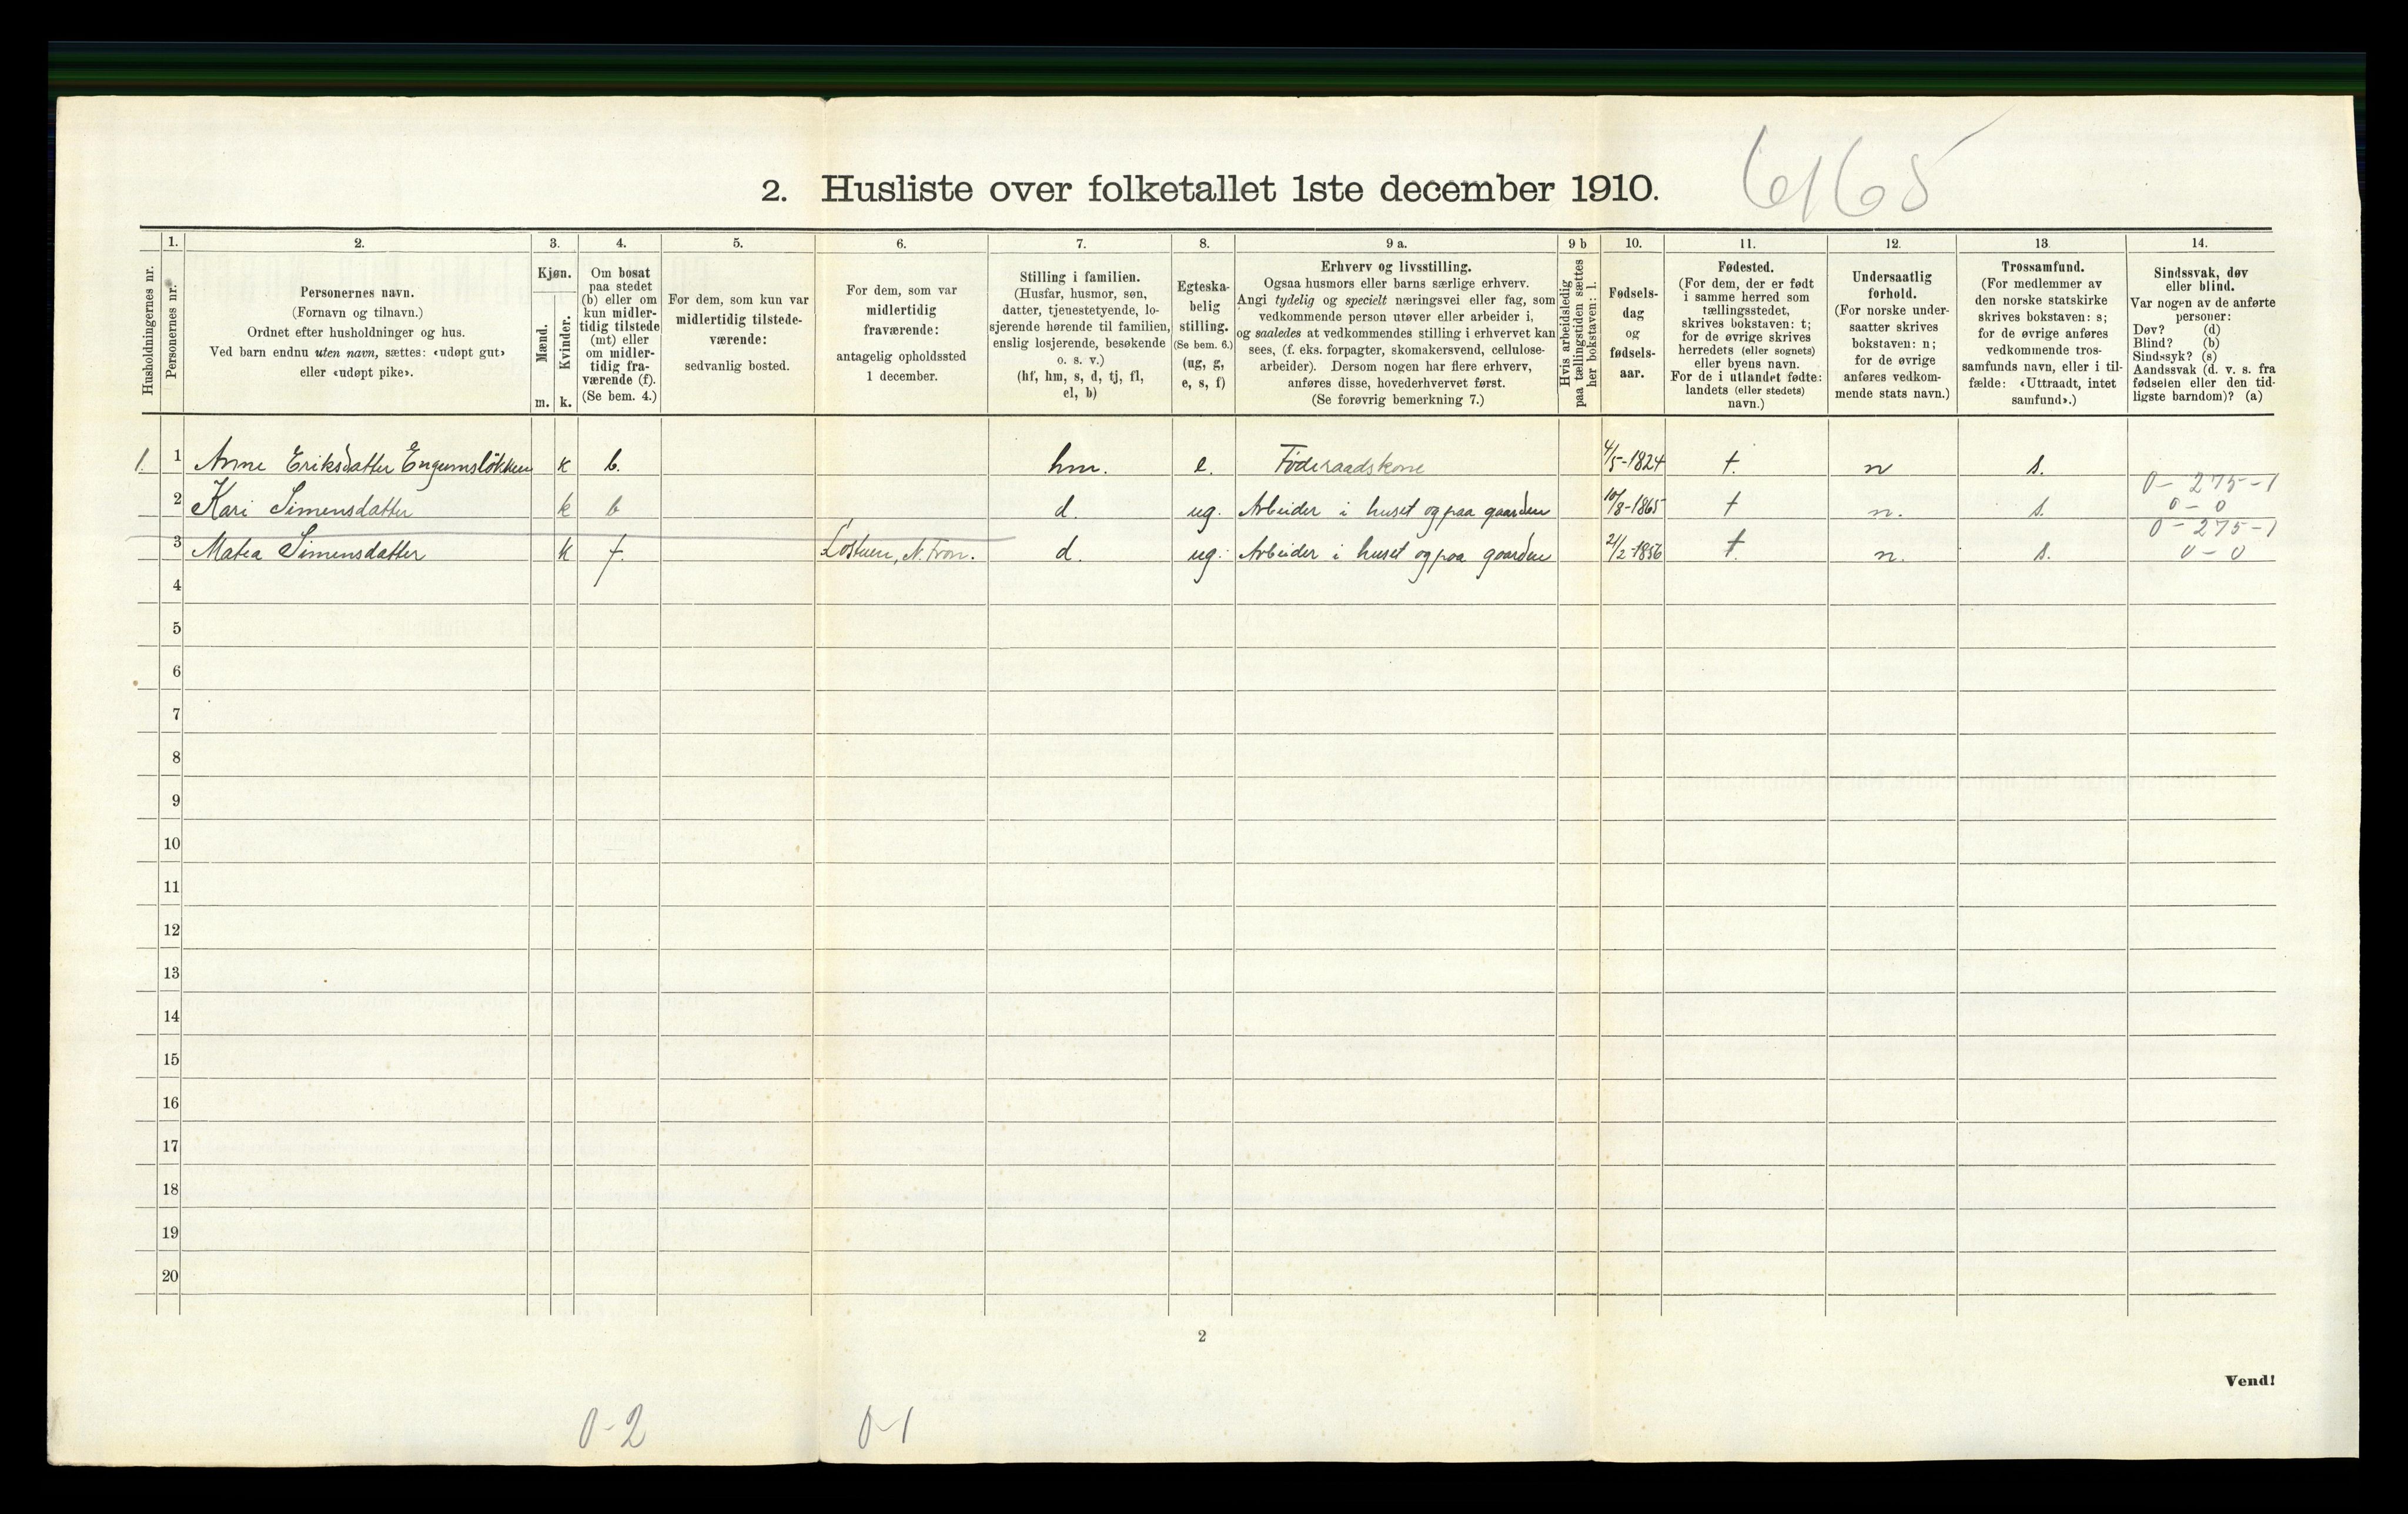 2. Husliste over folketallet 1ste december 1910.
6165
Husholdningernes nr.
1.
Personernes nr.
2.
Personernes navn.
(Fornavn og tilnavn.)
Ordnet efter husholdninger og hus.
Ved barn endnu uten navn, sættes: «udøpt gut»
eller «udøpt pike».
3.
Kjøn.
Mænd.
Kvinder.
m. k.
4.
Om bosat
paa stedet
(b) eller om
kun midler-
tidig tilstede
(mt) eller
om midler-
tidig fra-
værende (f).
(Se bem. 4.)
5.
For dem, som kun var
midlertidig tilstede-
værende:
sedvanlig bosted.
6.
For dem, som var
midlertidig
fraværende:
antagelig opholdssted
1 december.
7.
Stilling i familien.
(Husfar, husmor, søn,
datter, tjenestetyende, lo-
sjerende hørende til familien,
enslig losjerende, besøkende
o. s. v.)
(hf, hm, s, d, tj, fl,
el, b)
8.
Egteska-
belig
stilling.
(Se bem. 6.)
(ug, g,
e, s, f)
9 a.
Erhverv og livsstilling.
Ogsaa husmors eller barns særlige erhverv.
Angi tydelig og specielt næringsvei eller fag, som
vedkommende person utøver eller arbeider i,
og saaledes at vedkommendes stilling i erhvervet kan
sees, (f. eks. forpagter, skomakersvend, cellulose-
arbeider). Dersom nogen har flere erhverv,
anføres disse, hovederhvervet først.
(Se forøvrig bemerkning 7.)
9 b
Hvis arbeidsledig
paa tællingstiden sættes
her bokstaven: l.
10.
Fødsels-
dag
og
fødsels-
aar.
11.
Fødested.
(For dem, der er født
i samme herred som
tællingsstedet,
skrives bokstaven: t;
for de øvrige skrives
herredets (eller sognets)
eller byens navn.
For de i utlandet fødte:
landets (eller stedets)
navn.)
12.
Undersaatlig
forhold.
(For norske under-
saatter skrives
bokstaven: n;
for de øvrige
anføres vedkom-
mende stats navn.)
13.
Trossamfund.
(For medlemmer av
den norske statskirke
skrives bokstaven: s;
for de øvrige anføres
vedkommende tros-
samfunds navn, eller i til-
fælde: «Uttraadt, intet
samfund».)
14.
Sindssvak, døv
eller blind.
Var nogen av de anførte
personer:
Døv? (d)
Blind? (b)
Sindssyk? (s)
Aandssvak (d. v. s. fra
fødselen eller den tid-
ligste barndom)? (a)
1. 1 Anne Eriksdatter Engumsløkken k b. hm. e. Føderaadskone 4/5-1824 t. n s.
0 - 275 - 1
2 Kari Simensdatter k b d. ug. Arbeider i huset og paa gaarden 10/8-1865 t n. s. 0 - 0
0 - 275 - 1
3 Matea Simensdatter k f. N. Fron. d. ug. Arbeider i huset og paa gaarden 21/2-1856 t. n. s. 0 - 0
4
5
6
7
8
9
10
11
12
13
14
15
16
17
18
19
20
2
Vend!
0-2 0-1